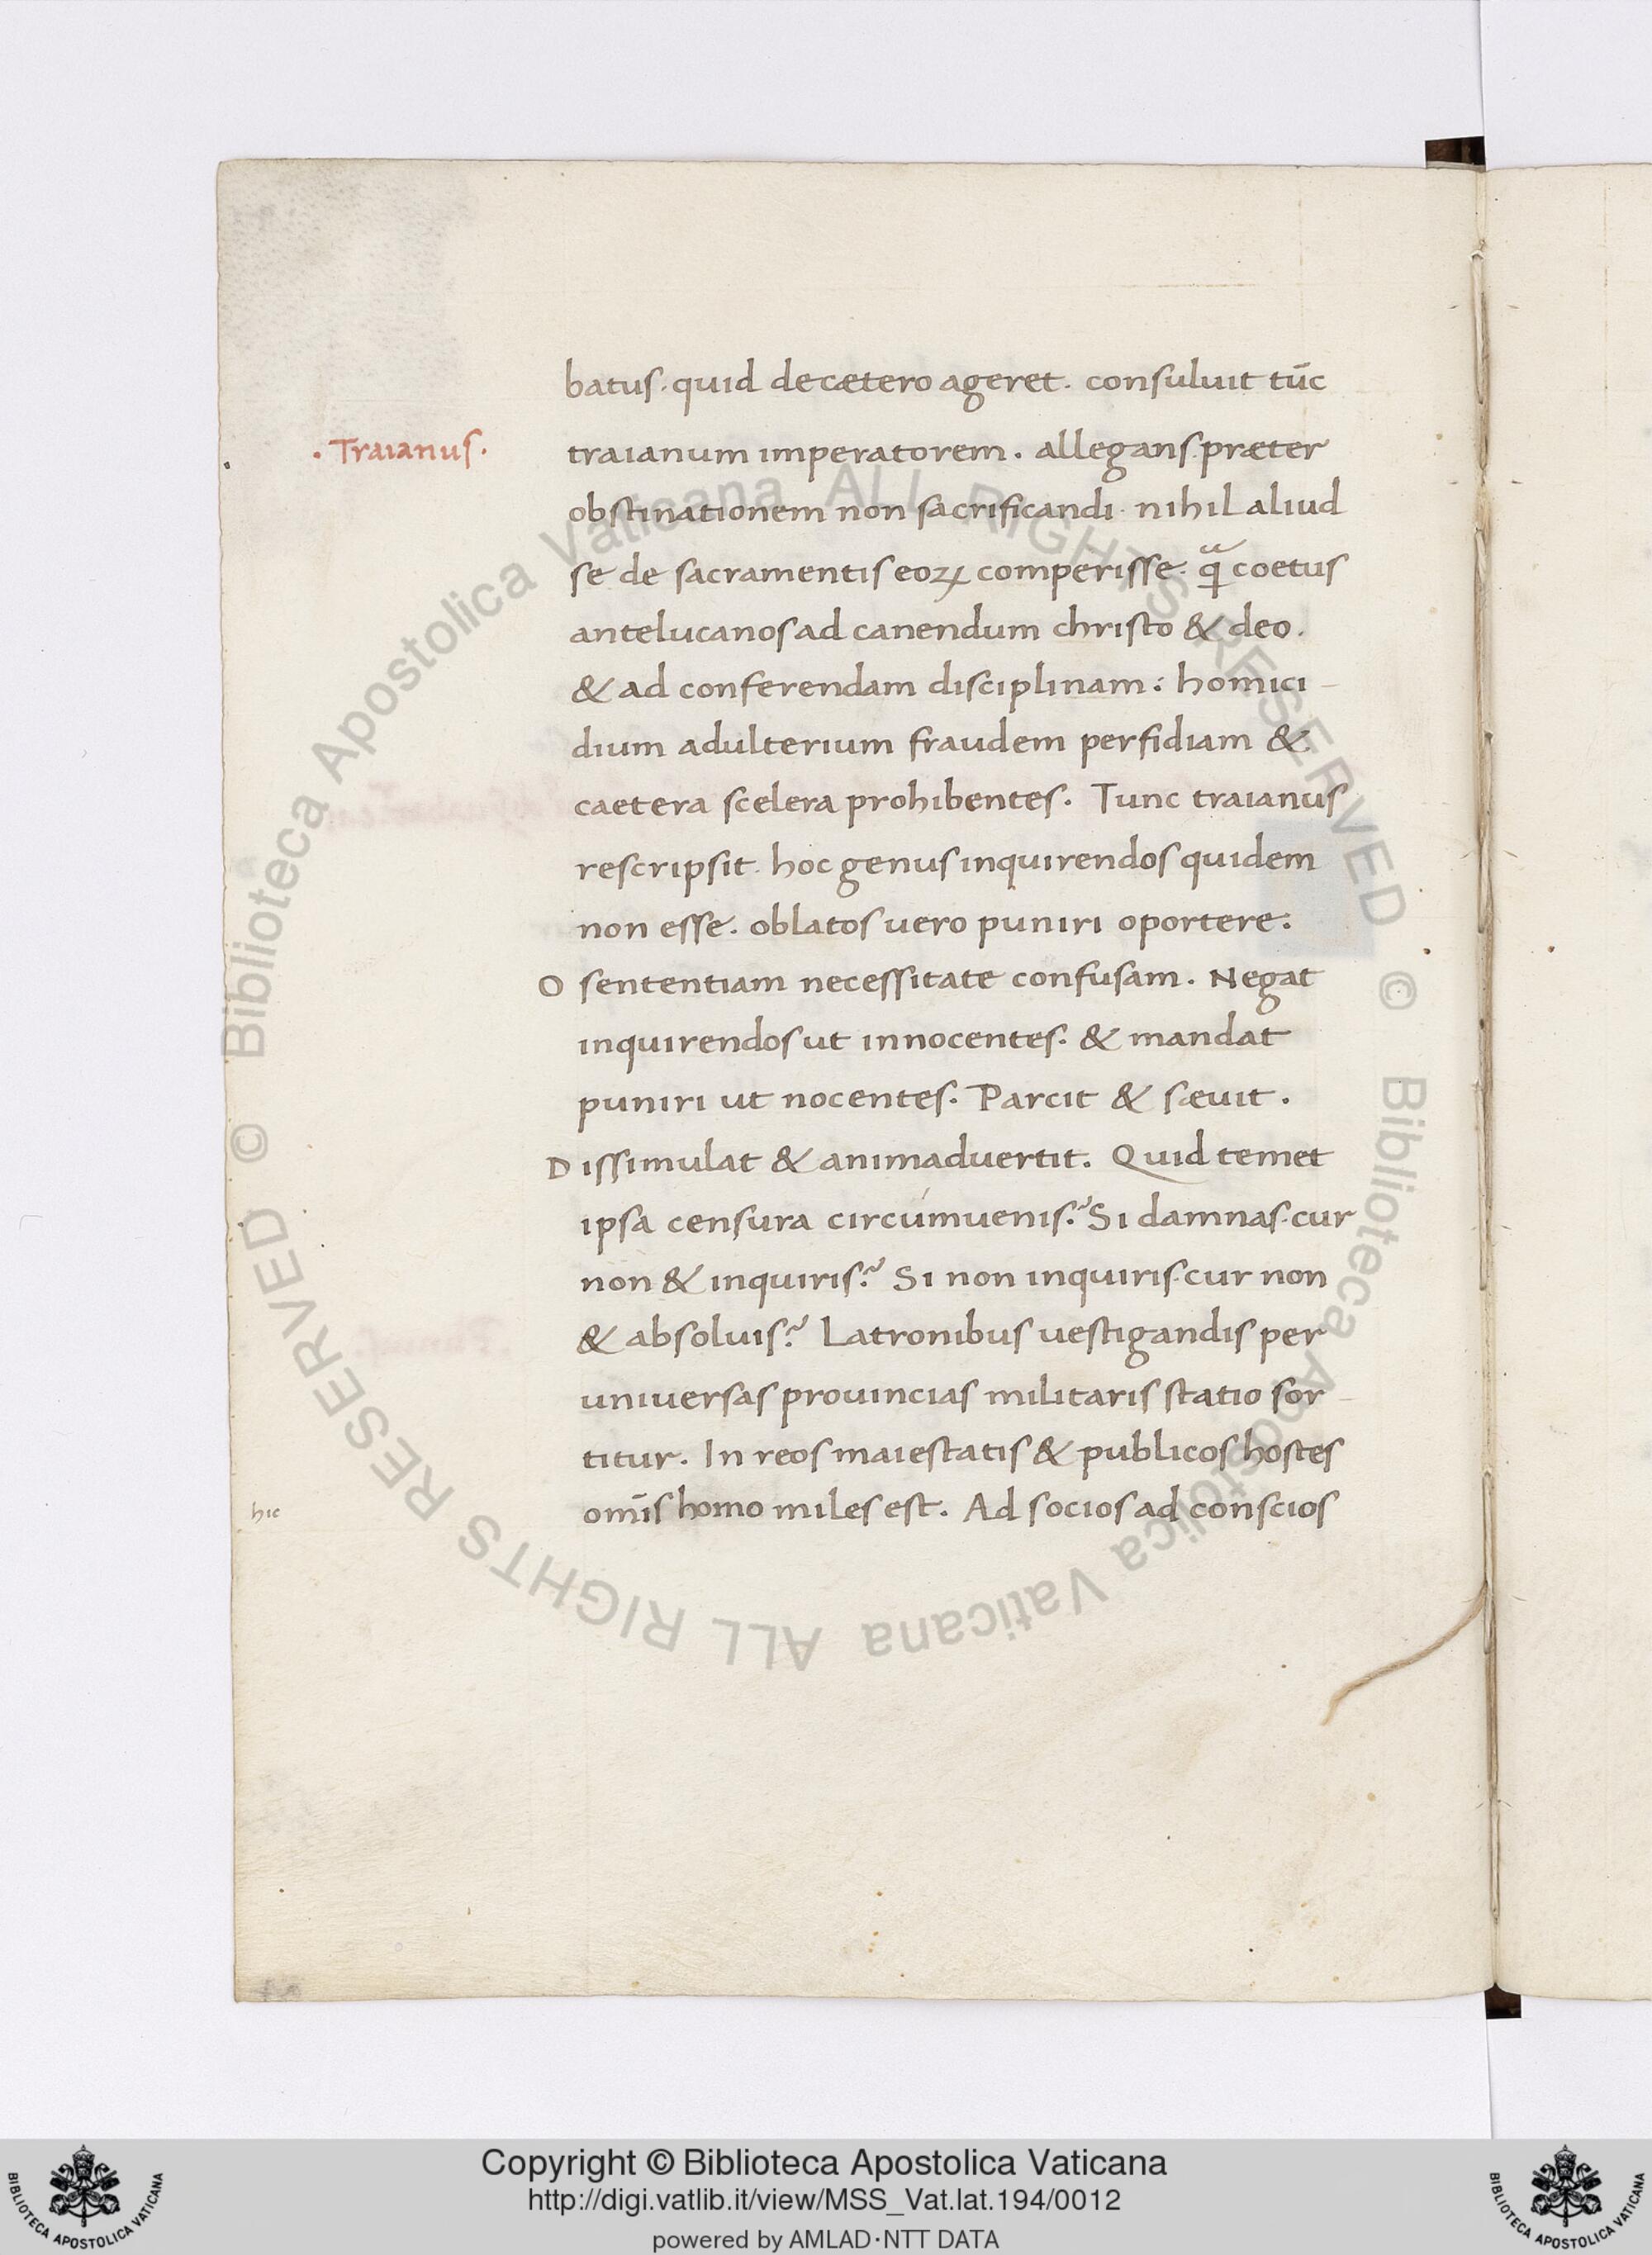 batus. quid decætero ageret. consuluit tūc
·Traianus·
traianum imperatorem. allegans. præter
obstinationem non sacrificandi. nihil aliud
se de sacramentis eoꝝ comperisse. qͣ coetus
antelucanos ad canendum christo & deo.
& ad conferendam disciplinam: homici-
dium adulterium fraudem perfidiam &
caetera scelera prohibentes. Tunc traianus
rescripsit. hoc genus inquirendos quidem
non esse. oblatos uero puniri oportere:
O sententiam necessitate confusam. Negat
inquirendos ut innocentes. & mandat
puniri ut nocentes. Parcit & sæuit.
Dissimulat & animaduertit. Quid temet
ipsa censura circúmuenis? Si damnas. cur
non & inquiris? Si non inquiris. cur non
& absoluis? Latronibus uestigandis per
uniuersas prouincias militaris statio sor-
titur. In reos maiestatis & publicos hostes
hic
om̄is homo miles est. Ad socios ad conscios
© Biblioteca Apostolica Vaticana ALL RIGHTS RESERVED
© Biblioteca Apostolica Vaticana ALL RIGHTS RESERVED
Copyright © Biblioteca Apostolica Vaticana
http://digi.vatlib.it/view/MSS_Vat.lat.194/0012
powered by AMLAD·NTT DATA
BIBLIOTECA APOSTOLICA VATICANA
BIBLIOTECA APOSTOLICA VATICANA